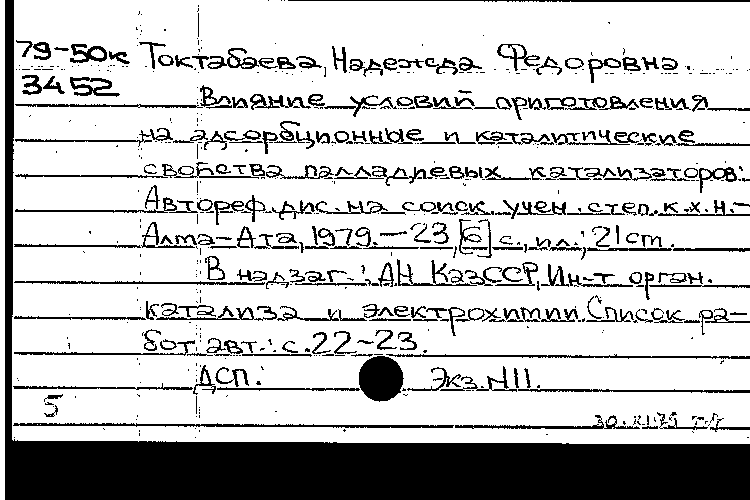 79-50к Токтабаева, Надежда Федоровна.
3452
Влияние условий приготовления
на адсорбционные и каталитические
свойства палладиевых катализаторов:
Автореф. дис. на соиск. учен. степ. к.х.н.-
Алма-Ата, 1979. - 23, [6] с., ил.; 21 см.
В надзаг.: АН КазССР, Ин-т орган.
катализа и электрохимии. Список ра-
бот авт.: с. 22-23.
ДСП. Экз. №11.
5
30.XI.79